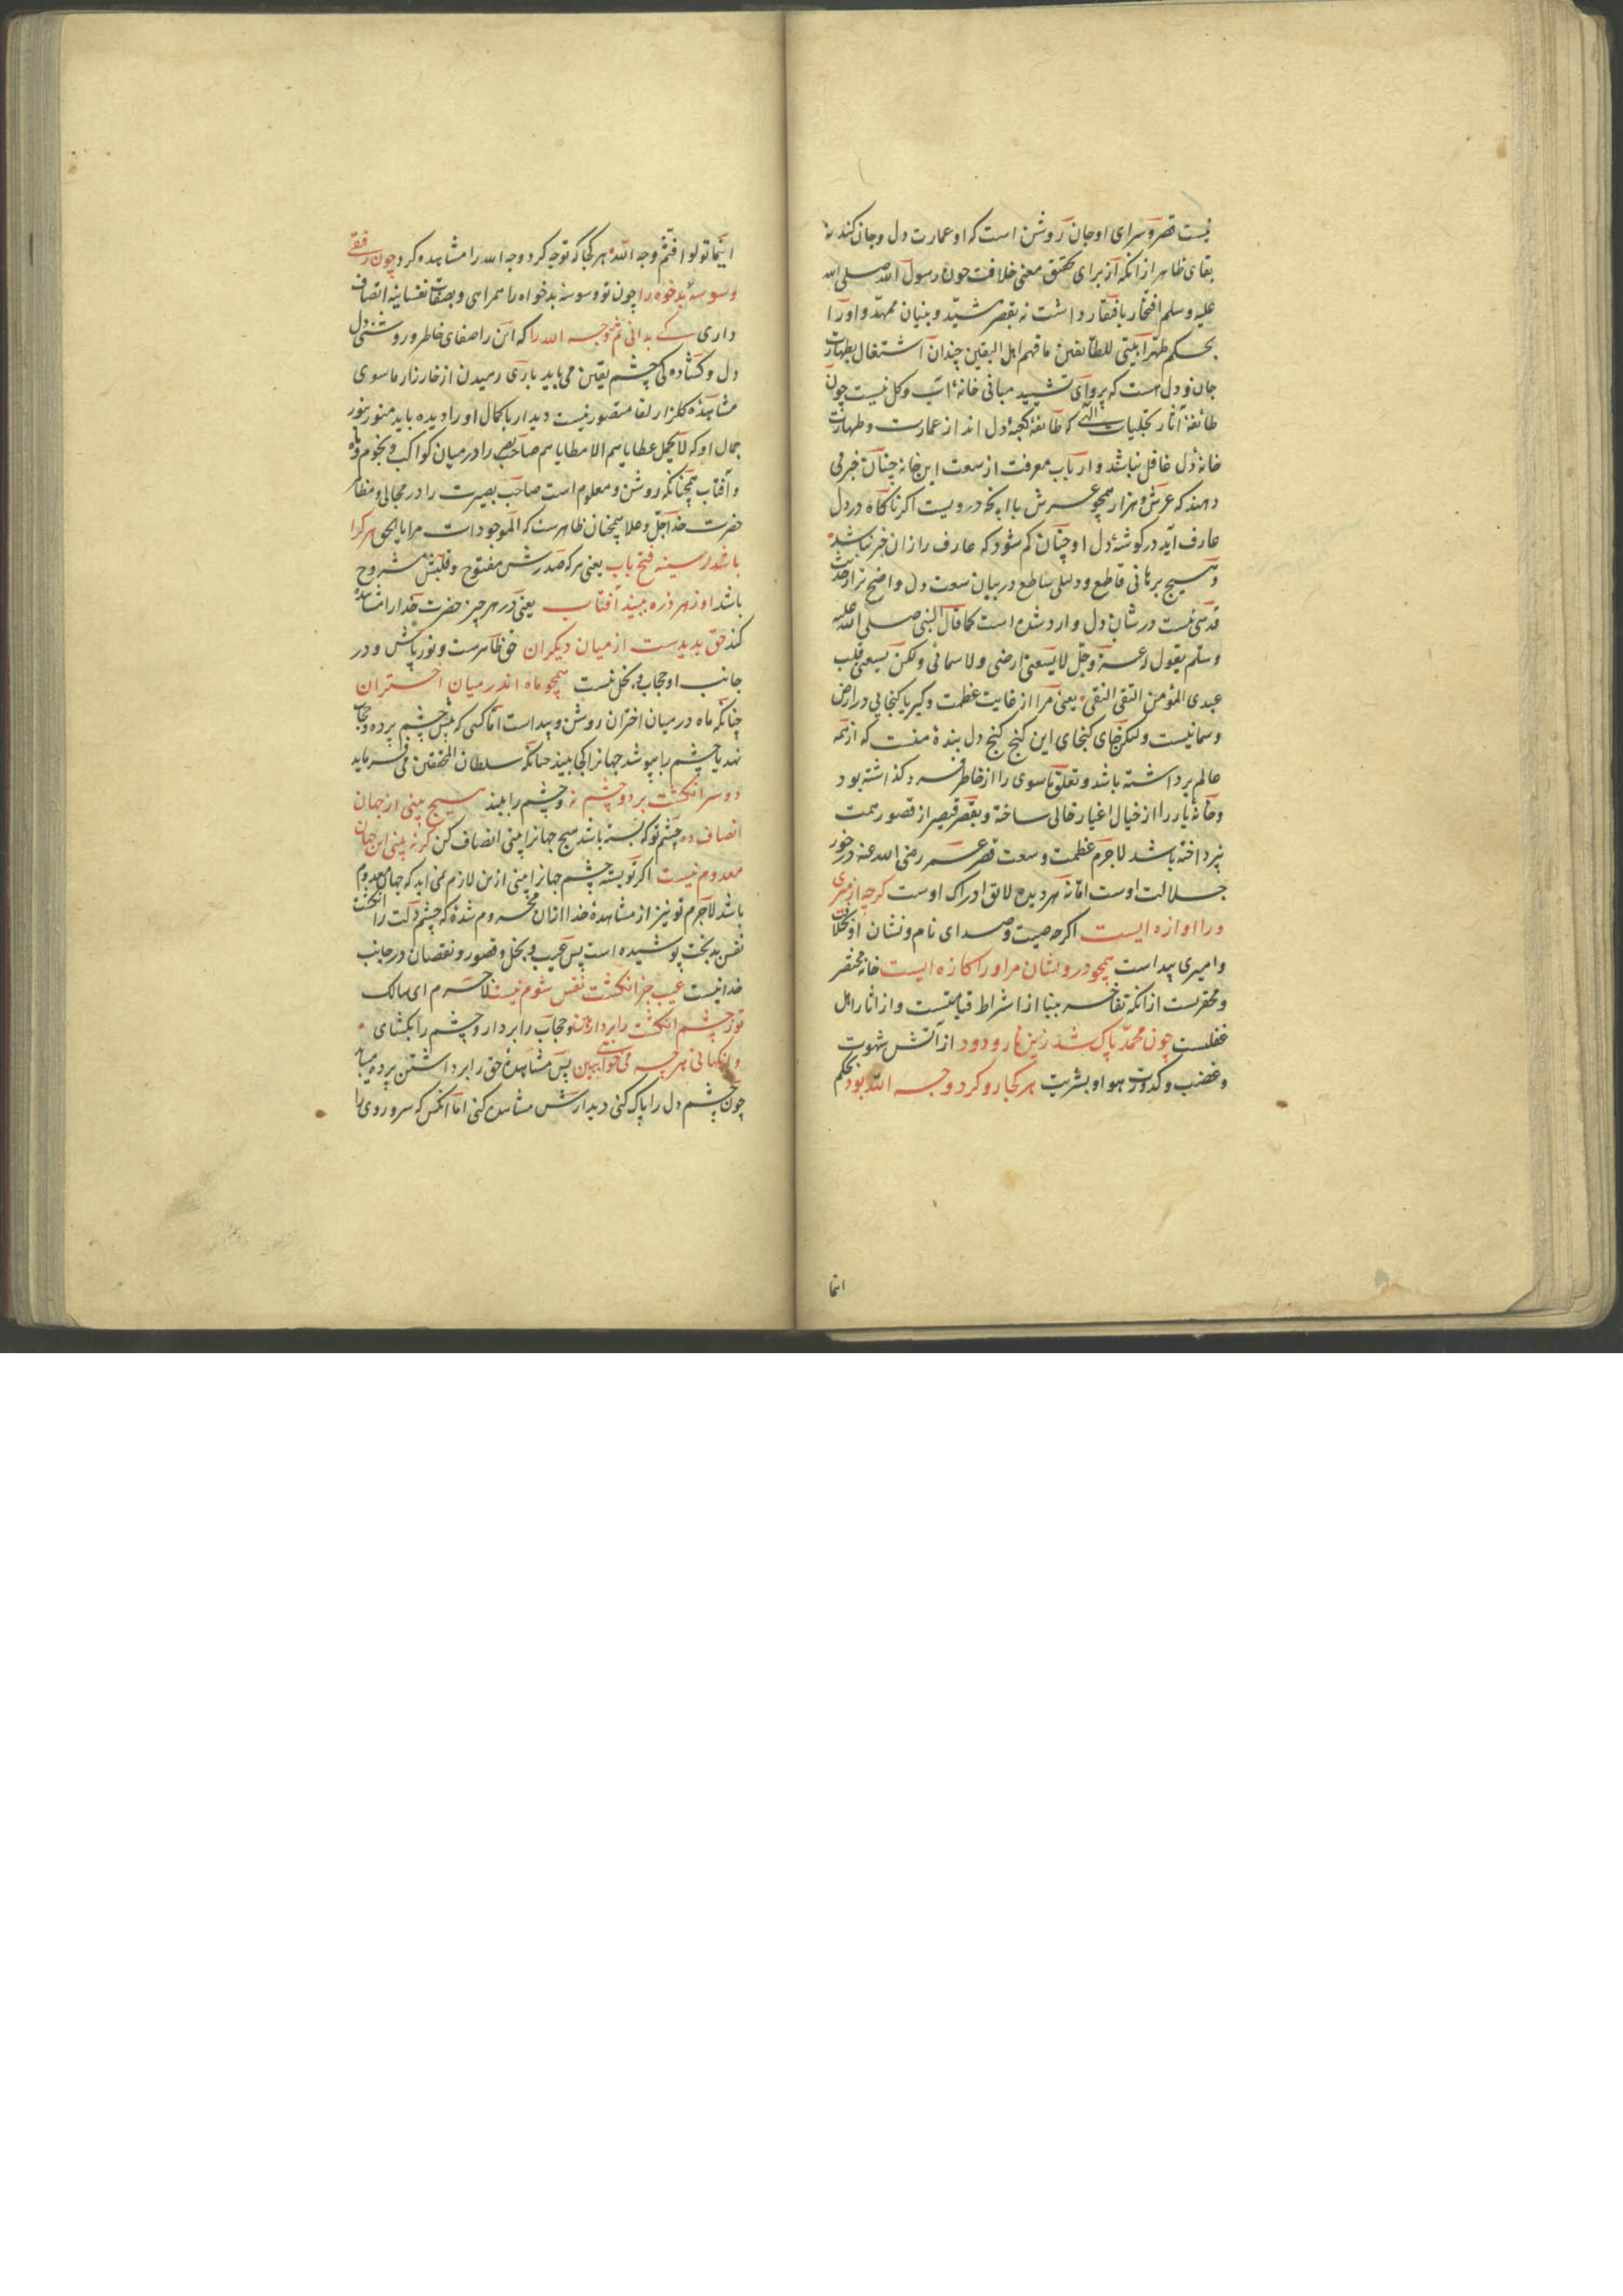 نیست قصر و سرای او جان روشن است که او عمارت دل و جان کند نه
بقای ظاهر از انکه از برای تحقیق معنی خلافت چون رسول الله صلی الله
علیه و سلم افتخار بافتقار داشت نه بقصر مشید و بنیان ممهد و او را
بحکم طهرا بیتی للطائفین ما فهم اهل الیقین چندان اشتغال بطهارت
جان و دل هست که پروای تشیید مبانی خانهٔ آب و کل نیست چون
طائفهٔ آثار تجلیات الهی که طائفهٔ کعبهٔ دل اند از عمارت و طهارت
خانهٔ دل غافل نباشد و ارباب معرفت از سعت این خانه چنان خبر می
دهند که عرش و هزار همچو عرش با آنچه درویست اکر ناکاه در دل
عارف آید در کوشهٔ دل او چنان کم شود که عارف را زان خبر نباشد
و هیچ برهانی قاطع و دلیلی ساطع در بیان سعت دل واضح تر از حدیث
قدسی نیست در شان دل وارد شده است کما قال النبی صلی الله علیه
وسلم یقول الله عز وجل لا یسعنی ارضی ولا سمائی ولکن یسعنی قلب
عبدی المؤمن التقی النقی یعنی مرا از غایت عظمت و کبریا کنجایی در ارض
و سما نیست ولیکن جای کنجای این کنج کنج دل بندهٔ منست که از همه
عالم برداشته باشد و تعلق ماسوی را از خاطر فرو کذاشته بود
و خانهٔ یار را از خیال اغیار خالی ساخته و بقصر قیصر از قصور همت
نپرداخته باشد لاجرم عظمت و سعت قصر عمر رضی الله عنه در خور
جلالت اوست اما نه هر دیده لائق ادراک اوست کرچه از میری
ورا اوازه ایست اکرچه صیت و صدای نام و نشان او بخلافت
و امیری پیداست همچو درویشان مر او را کازه ایست خانه مختصر
و محقرست از انکه تفاخر ببنا از اشراط قیامتست و از اثار اهل
غفلست چون محمد پاک شد زین نار و دود از آتش شهوت
و غضب و کدورت هوا و بشریت هر کجا رو کرد وجه الله بود بحکم
اینما
اینما تولوا فثم وجه الله هر کجا که توجه کرد وجه الله را مشاهده کرد چون رفقی
وسوسهٔ بدخوه را چون تو وسوسهٔ بدخواه را همراهی و بصفات نفسانیه اتصاف
داری کے بدانی ثم وجه الله را که این را صفای خاطر و روشنی دل
دل و کشادکی چشم یقین می باید باری رمیدن از خارزار ماسوی
مشاهدهٔ کلزار لقا متصور نیست دیدار باکمال او را دیده باید منور بنور
جمال او که لا یحمل عطایاهم الا مطایاهم صاحب بصر را در میان کواکب و نجوم ماه
و آفتاب همچنانکه روشن و معلوم است صاحب بصیرت را در مجالی و مظاهر
حضرت خدا جل و علا همچنان ظاهرست که الموجودات مرایا الحق هر کرا
باشد ز سینه فتح باب یعنی هر که صدرش مفتوح و قلبش مشروح
باشد او ز هر ذره ببیند آفتاب یعنی در هر چیز حضرت خدا را مشاهده
کند حق پدیدست از میان دیکران حق ظاهرست و نورپاش و در
جانب او حجاب و بخل نیست همچو ماه اندر میان اختران
چنانکه ماه در میان اختران روشن و پیداست اما کسی که پیش چشم پرده و حجاب
نهد یا چشم را بپوشد جهانرا کجا بیند چنانکه سلطان المحققین می فرماید
دو سر انکشت بر دو چشم نه و چشم را ببند هیچ بینی از جهان
انصاف ده چشم تو که بسته باشد هیچ جهانرا بینی انصاف کن کر نه بینی این جهان
معدوم نیست اکر تو بسته چشم جهانرا نبینی ازین لازم نمی اید که جهان معدوم
باشد لاجرم تو نیز از مشاهدهٔ خدا ازان محروم شدهٔ که چشم دلت را انکشت
نفس بدبخت پوشیده است پس عیب و بخل و قصور و نقصان در جانب
خدا نیست عیب جز انکشت نفس شوم نیست لاجرم ای سالک
تو ز چشم انکشت را بردار هین و حجاب را بردار و چشم را بکشای
وانکهانی هر چه می خواهی ببین پس مشاهدهٔ حق را برداشتن پرده میباید
چون چشم دل را پاک کنی دیدارش مشاهده کنی اما انکس که سر و روی را